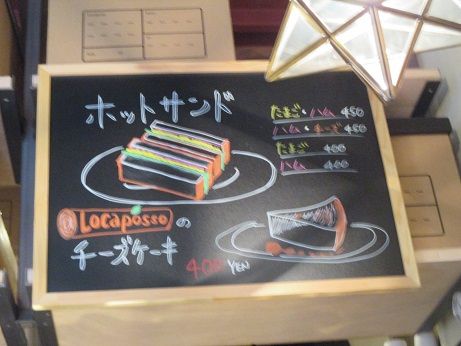 ホットサンド
たまご・ハム 450
ハム・チーズ 450
たまご 400
ハム 400
Locaposso の
チーズケーキ
400 YEN